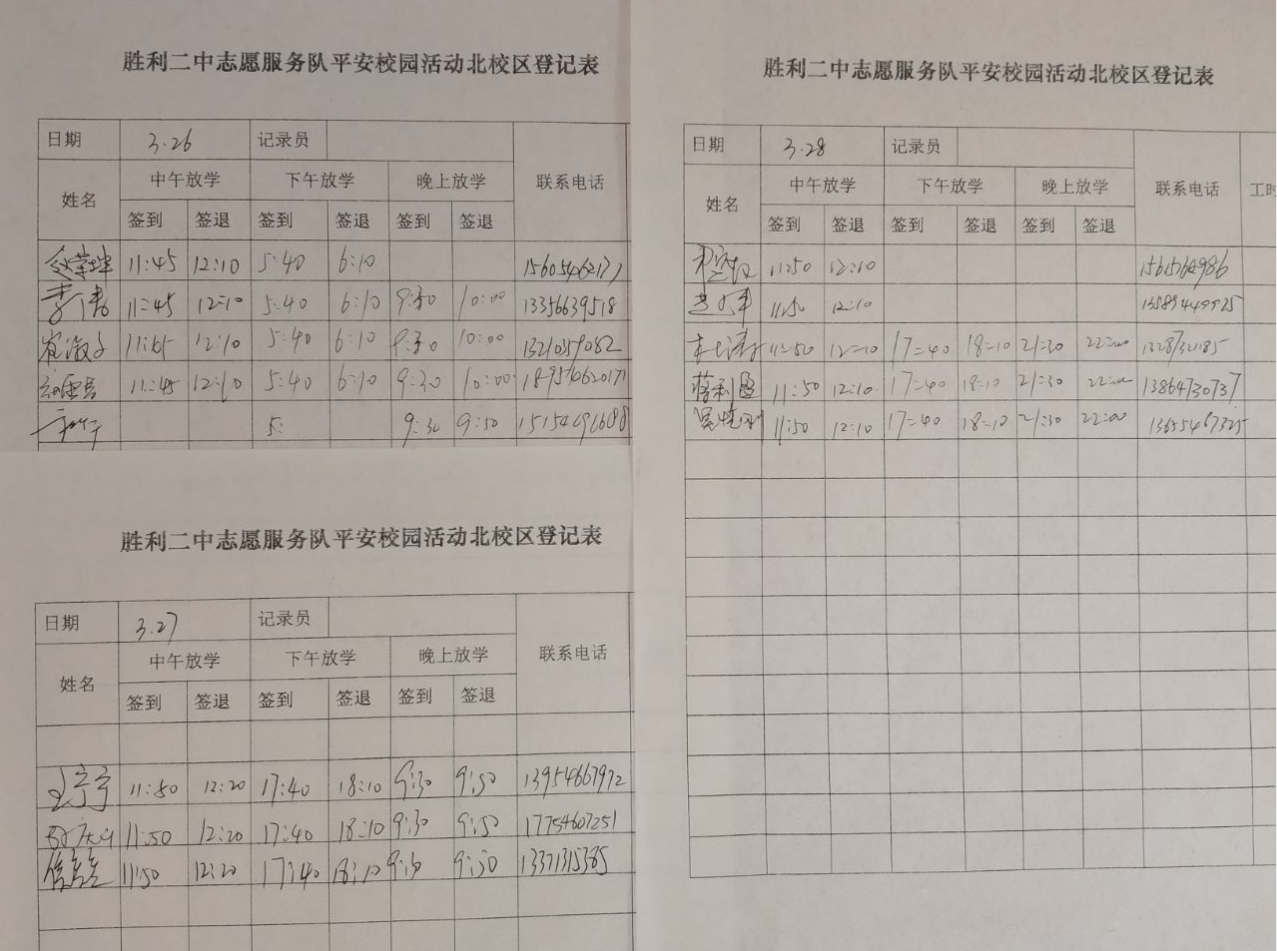 胜利二中志愿服务队平安校园活动北校区登记表
日期 3.26 记录员
姓名 中午放学 下午放学 晚上放学 联系电话
签到 签退 签到 签退 签到 签退
11:45 12:10 5:40 6:10
李伟 11:45 12:10 5:40 6:10 9:30 10:00 13356639518
崔淑子 12:10 5:40 6:10 9:30 10:00 13210359082
11:45 12:10 5:40 6:10 9:30 10:00
5: 9:30 9:50
胜利二中志愿服务队平安校园活动北校区登记表
日期 3.27 记录员
姓名 中午放学 下午放学 晚上放学 联系电话
签到 签退 签到 签退 签到 签退
王宁宁 11:50 12:20 17:40 18:10 9:30 9:50 13954667972
11:50 12:20 17:40 18:10 9:30 9:50 17754607251
11:50 12:20 17:40 18:10 9:30 9:50 13371315385
胜利二中志愿服务队平安校园活动北校区登记表
日期 3.28 记录员
姓名 中午放学 下午放学 晚上放学 联系电话 工时
签到 签退 签到 签退 签到 签退
11:50 12:10
11:50 12:10
11:50 12:10 17:40 18:10 21:30 22:00
蒋利国 11:50 12:10 17:40 18:10 21:30 22:00 13864730737
11:50 12:10 17:40 18:10 21:30 22:00 13655467325